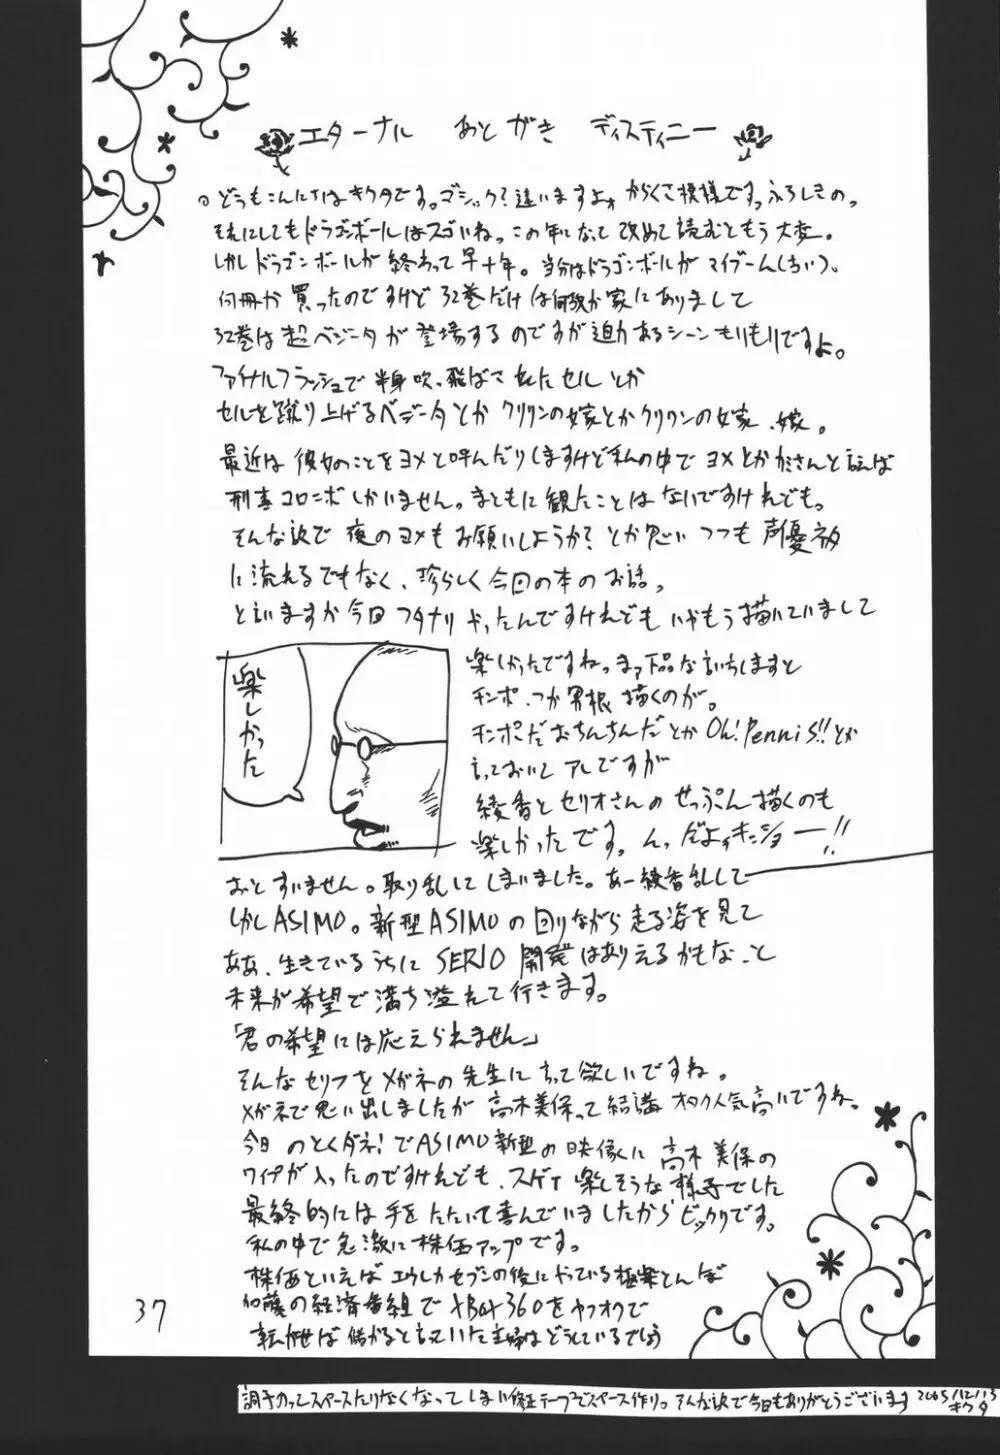 エターナル あとがき ディスティニー
。どうもこんにちはキクタです。ゴシック?違いますよォからくさ模様です。ふろしきの。
それにしてもドラゴンボールはスゴいね。この年になって改めて読むともう大変。
しかしドラゴンボールが終わって早十年。当分はドラゴンボールがマイブーム(古い)。
何冊か買ったのですけど32巻だけは何故か家にありまして
32巻は超ベジータが登場するのですが迫力あるシーンもりもりですよ。
ファイナルフラッシュで半身吹っ飛ばされたセルとか
セルを蹴り上げるベジータとかクリリンの嫁とかクリリンの嫁、嫁。
最近は彼女のことをヨメと呼んだりしますけど私の中でヨメとかカミさんと言えば
刑事コロンボしかいません。まともに観たことはないですけれども。
そんな訳で夜のヨメもお願いしようか?とか思いつつも声優ネタ
に流れるでもなく、珍らしく今回の本のお話。
と言いますか今回フタナリやったんですけれどもいやもう描いていまして
楽しかったですねっまァ下品な言いちしますと
チンポ、つか男根描くのが。
チンポだおちんちんだとかOh!Pennis!!とか
言っておいてアレですが
綾香とセリオさんのせっぷん描くのも
楽しかったです。んっだよィキショー!!
楽しかった
おとすいません。取り乱してしまいました。あー綾香乱して
しかしASIMO。新型ASIMOの回りながら走る姿を見て
ああ、生きているうちにSERIO開発はありえるかもな、と
未来が希望で満ち溢れて行きます。
「君の希望には応えられません」
そんなセリフをメガネの先生に言って欲しいですね。
メガネで思い出しましたが高木美保って結構オタク人気高いですね。
今日のとくダネ!でASIMO新型の映像に高木美保の
ワイプが入ったのですけれども、スゲェ楽しそうな様子でした
最終的には手をたたいて喜んでいましたからビックリです。
私の中で急激に株価アップです。
株価といえばエウレカセブンの後にやっている極楽とんぼ
加藤の経済番組でXBOX360をヤフオクで
転売せば儲かると言っていた主婦はどうしているでしょう
37
調子のってスペースたりなくなってしまい修正テープでスペース作り。そんな訳で今日もありがとうございます 2005/12/13
キクタ